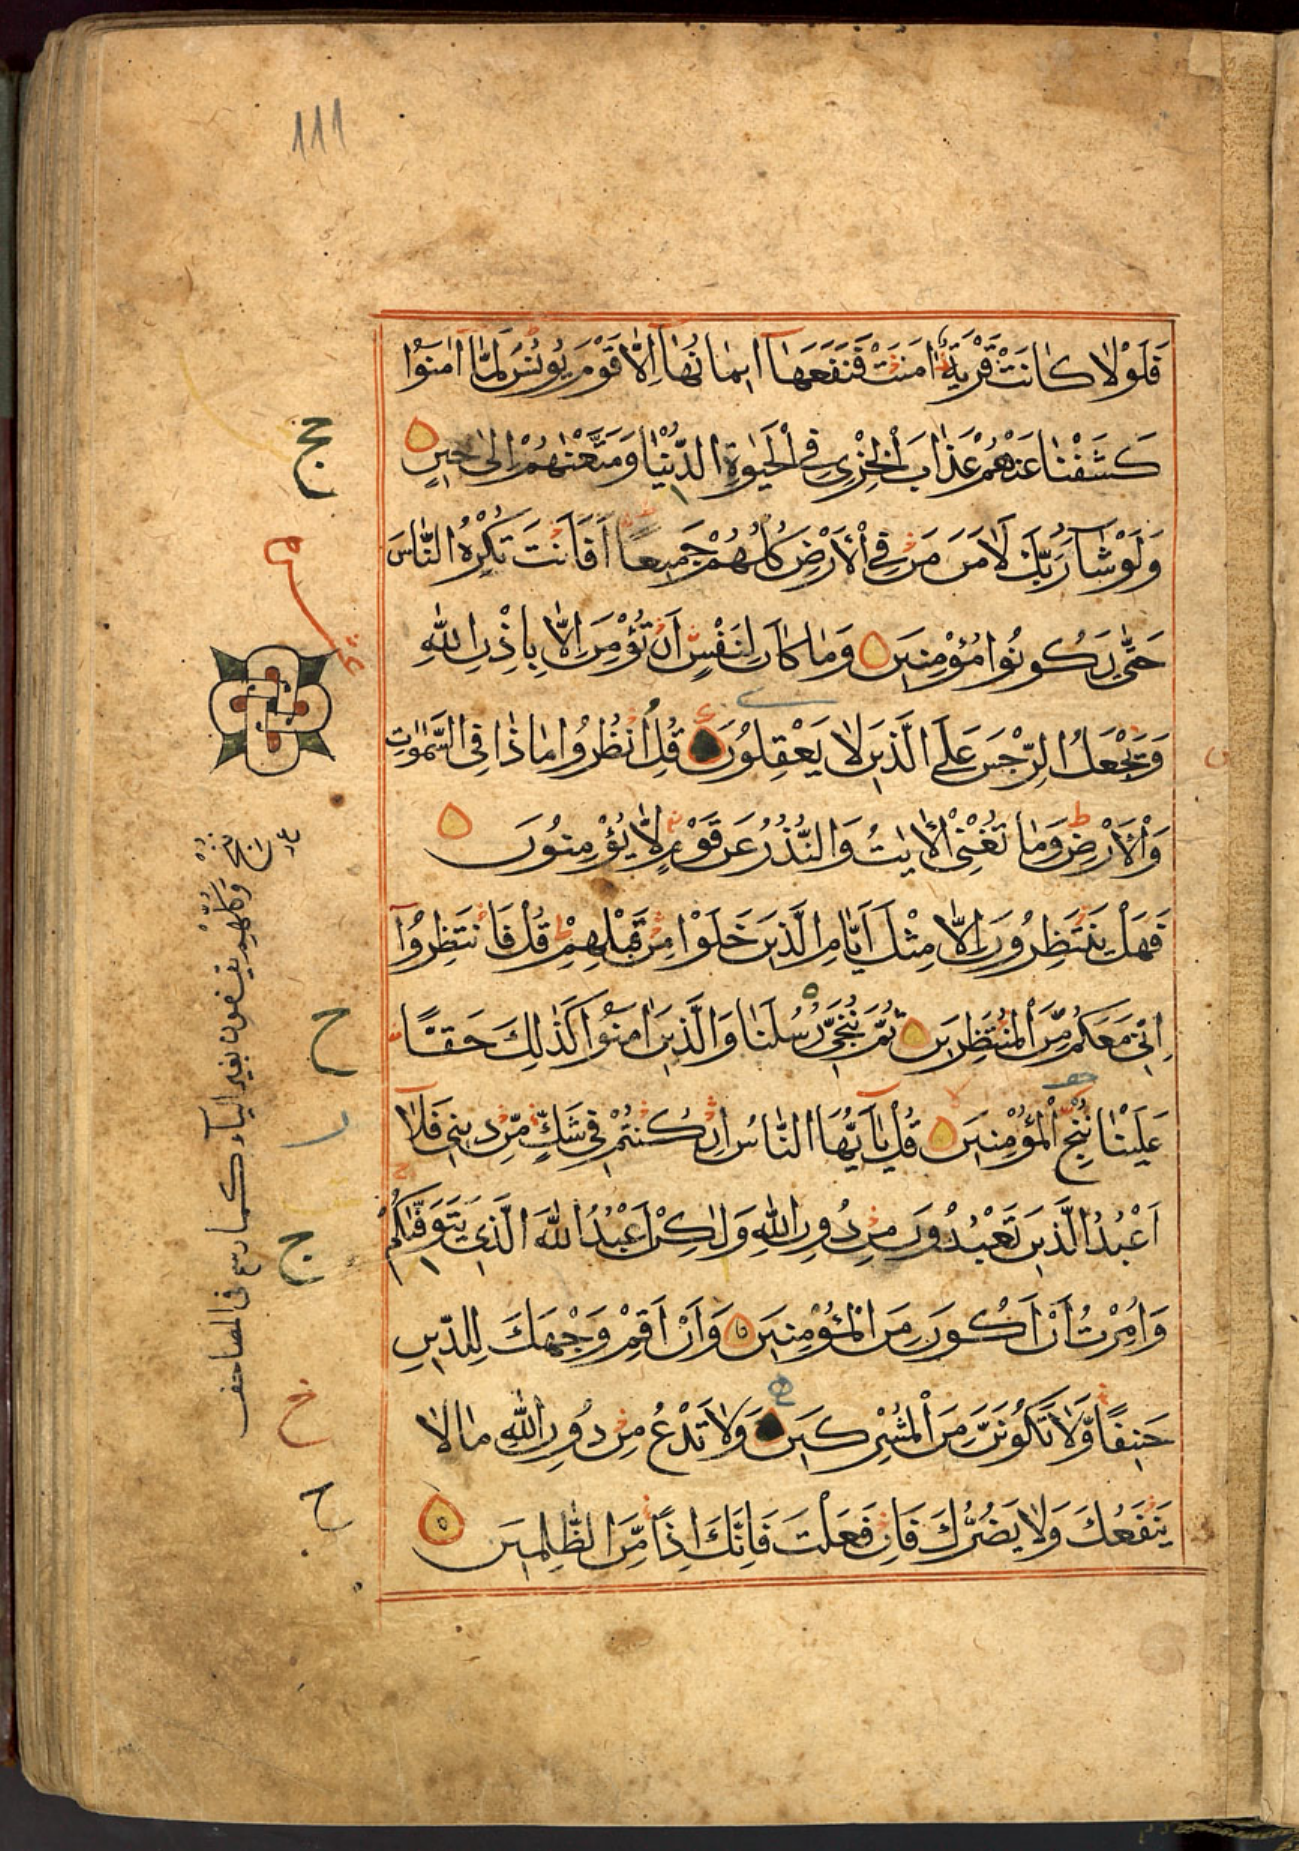 111
فَلَوْلَا كَانَتْ قَرْيَةٌ اٰمَنَتْ فَنَفَعَهَا اِيمَانُهَا اِلَّا قَوْمَ يُونُسَ لَمَّا اٰمَنُوا
كَشَفْنَا عَنْهُمْ عَذَابَ الْخِزْيِ فِي الْحَيٰوةِ الدُّنْيَا وَمَتَّعْنٰهُمْ اِلٰى حِينٍ
وَلَوْ شَآءَ رَبُّكَ لَاٰمَنَ مَنْ فِي الْاَرْضِ كُلُّهُمْ جَمِيعًا اَفَاَنْتَ تُكْرِهُ النَّاسَ
حَتّٰى يَكُونُوا مُؤْمِنِينَ وَمَا كَانَ لِنَفْسٍ اَنْ تُؤْمِنَ اِلَّا بِاِذْنِ اللّٰهِ
وَيَجْعَلُ الرِّجْسَ عَلَى الَّذِينَ لَا يَعْقِلُونَ قُلِ انْظُرُوا مَاذَا فِي السَّمٰوَاتِ
وَالْاَرْضِ وَمَا تُغْنِي الْاٰيَاتُ وَالنُّذُرُ عَنْ قَوْمٍ لَّا يُؤْمِنُونَ
فَهَلْ يَنْتَظِرُونَ اِلَّا مِثْلَ اَيَّامِ الَّذِينَ خَلَوْا مِنْ قَبْلِهِمْ قُلْ فَانْتَظِرُوا
اِنِّي مَعَكُمْ مِّنَ الْمُنْتَظِرِينَ ثُمَّ نُنَجِّي رُسُلَنَا وَالَّذِينَ اٰمَنُوا كَذٰلِكَ حَقًّا
عَلَيْنَا نُنْجِ الْمُؤْمِنِينَ قُلْ يَآ اَيُّهَا النَّاسُ اِنْ كُنْتُمْ فِي شَكٍّ مِّنْ دِينِي فَلَا
اَعْبُدُ الَّذِينَ تَعْبُدُونَ مِنْ دُونِ اللّٰهِ وَلٰكِنْ اَعْبُدُ اللّٰهَ الَّذِي يَتَوَفّٰيكُمْ
وَاُمِرْتُ اَنْ اَكُونَ مِنَ الْمُؤْمِنِينَ وَاَنْ اَقِمْ وَجْهَكَ لِلدِّينِ
حَنِيفًا وَّلَا تَكُونَنَّ مِنَ الْمُشْرِكِينَ وَلَا تَدْعُ مِنْ دُونِ اللّٰهِ مَا لَا
يَنْفَعُكَ وَلَا يَضُرُّكَ فَاِنْ فَعَلْتَ فَاِنَّكَ اِذًا مِّنَ الظّٰلِمِينَ
وكلهم يقفون بغير الياء كما رسم في المصاحف